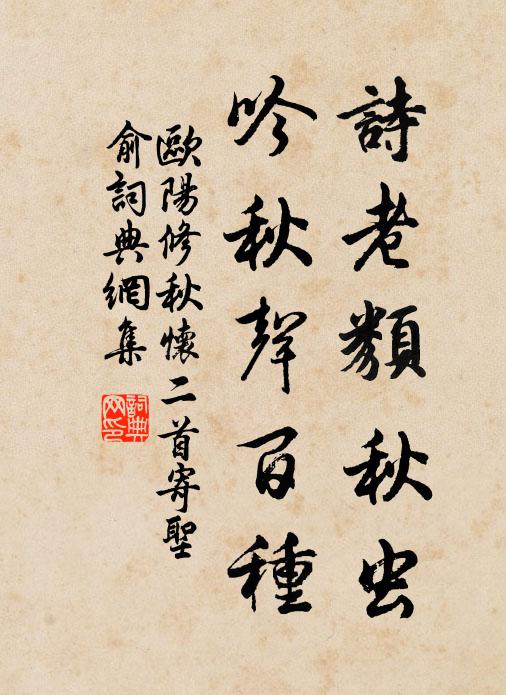 詩老類秋虫
吟秋聲百種
歐陽修秋懷二首寄聖
俞詞典網集
詞典
网印